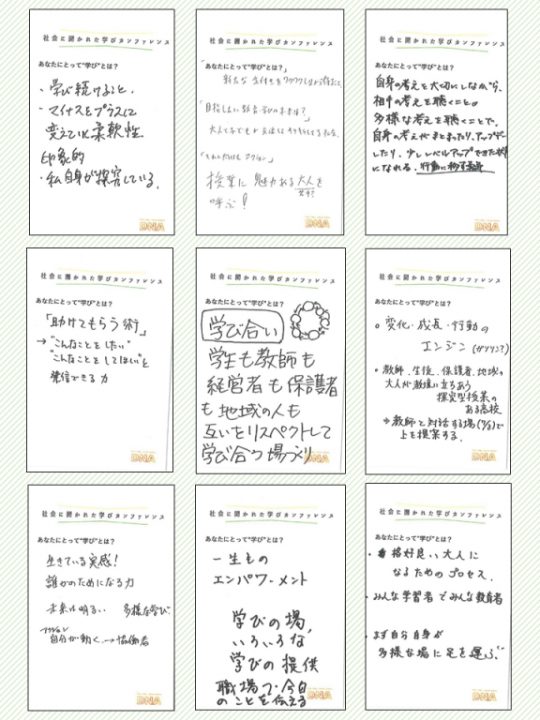 社会に開かれた学びカンファレンス
あなたにとって"学び"とは?
・学び続けること。
・マイナスをプラスに
変えていく柔軟性
印象的
・私自身が探究している。
DNA
社会に開かれた学びカンファレンス
あなたにとって"学び"とは?
大人も子どもも
授業に魅力ある大人を
呼ぶ!
DNA
社会に開かれた学びカンファレンス
あなたにとって"学び"とは?
自身の考えを大切にしながら、
相手の考えを聴くこと。
多様な考えを聴くことで、
自身の考えがまとまったり、アップデート
したり、少しレベルアップできた状態
になれる。行動に移す
社会に開かれた学びカンファレンス
あなたにとって"学び"とは?
「助けてもらう術」
→"こんなことをしたい"
"こんなことをしてほしい"を
発信できる力
DNA
社会に開かれた学びカンファレンス
あなたにとって"学び"とは?
学び合い
学生も教師も
経営者も保護者
も地域の人も
互いをリスペクトして
学び合う場づくり
DNA
社会に開かれた学びカンファレンス
あなたにとって"学び"とは?
○変化・成長・行動の
エンジン(ガソリン?)
○教師、生徒、保護者、地域の
大人が教壇に立ちあう
探究型授業の
ある高校
※教師と対話する場で
上を提案する。
DNA
社会に開かれた学びカンファレンス
あなたにとって"学び"とは?
生きている実感!
誰かのためになる力
未来は明るい 多様な学び
アクション
自分が動く→協働者
DNA
社会に開かれた学びカンファレンス
あなたにとって"学び"とは?
一生もの
エンパワーメント
学びの場、
いろいろな
学びの提供
職場で今日
のことを伝える
DNA
社会に開かれた学びカンファレンス
あなたにとって"学び"とは?
・格好良い大人に
なるためのプロセス。
・みんな学習者でみんな教育者
・まず自分自身が
多様な場に足を運ぶ。
DNA